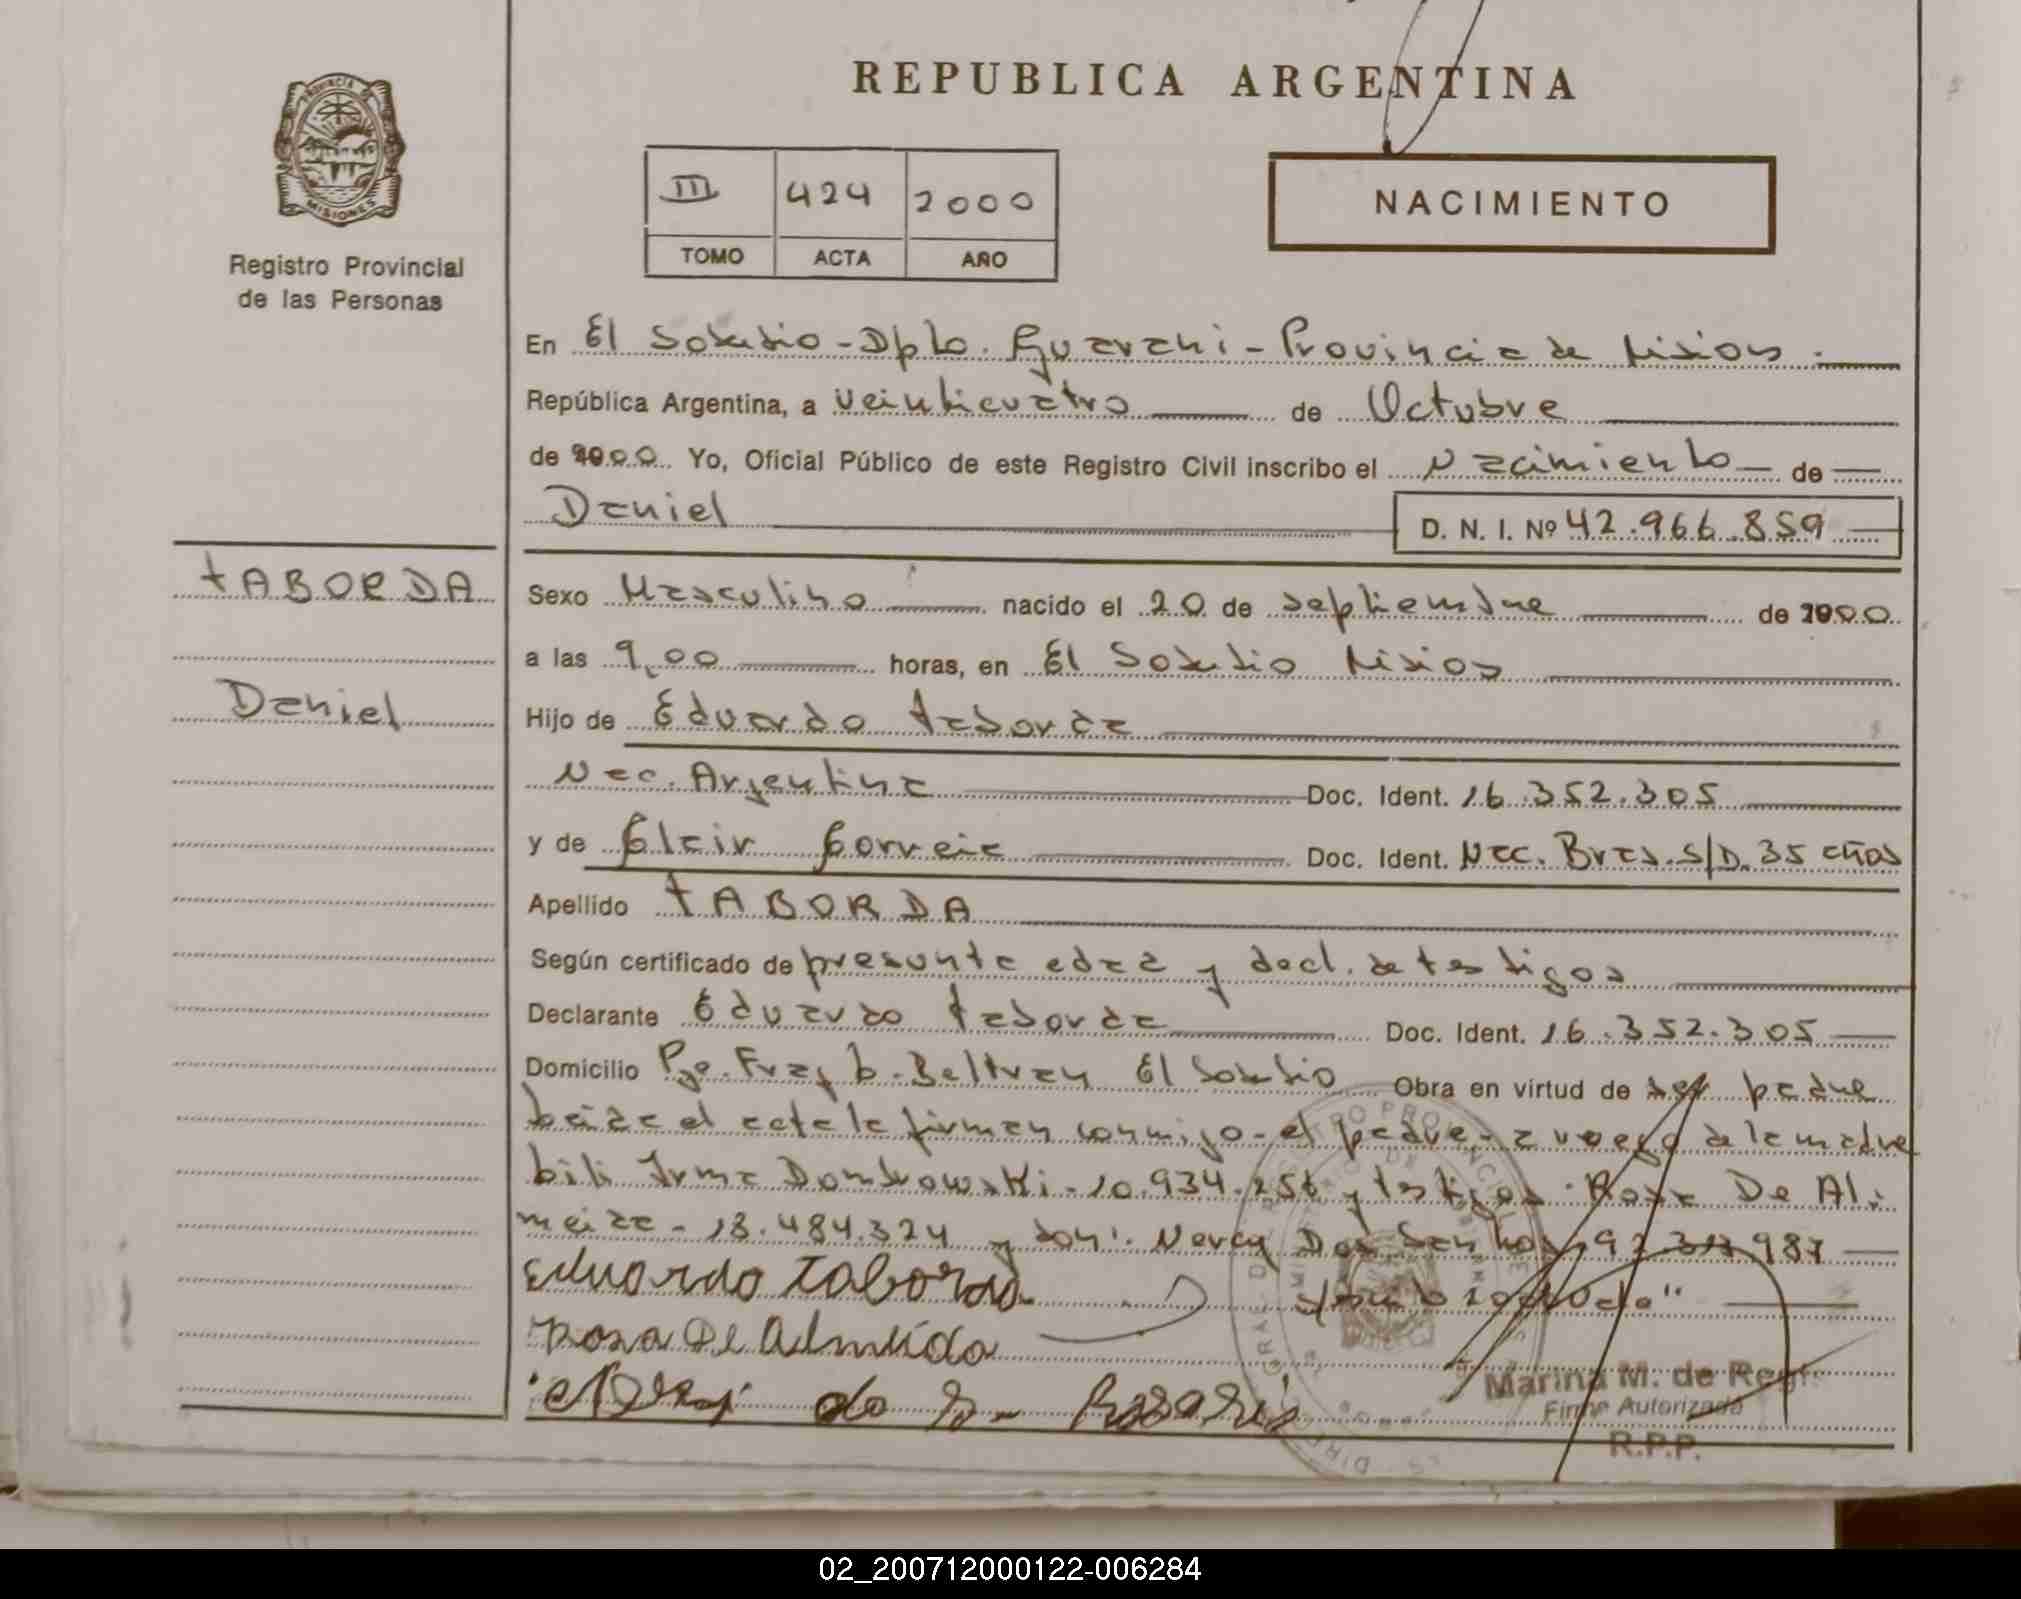 REPUBLICA ARGENTINA
PROVINCIA DE
MISIONES
Registro Provincial
de las Personas
III 424 2000
TOMO ACTA AÑO
NACIMIENTO
En El Soberbio - Dpto. Guarani - Provincia de Misiones.
República Argentina, a veinticuatro de Octubre
de 2000 Yo, Oficial Público de este Registro Civil inscribo el Nacimiento de
Daniel D. N. I. Nº 42.966.859
TABORDA
Daniel
Sexo Masculino nacido el 20 de septiembre de 2000
a las 9,00 horas, en El Soberbio Misiones
Hijo de Eduardo Taborda
Nac. Argentina Doc. Ident. 16.352.305
y de Clair Correia Doc. Ident. Nac. Bras. S/D. 35 años
Apellido TABORDA
Según certificado de presunta edad y decl. de testigos
Declarante Eduardo Taborda Doc. Ident. 16.352.305
Domicilio Pje. Fray b. Beltran El Soberbio Obra en virtud de ser padre
leida el acta la firman conmigo - el padre - a ruego de la madre
Irma Dombrowski - 10.934.256 y testigos: Rosa De Al
meida - 18.484.324 y don: Nercy Dos Santos 987
Eduardo Taborda
Rosa De Almeida
Marina M. de
Firma Autorizada
R.P.P.
02_200712000122-006284